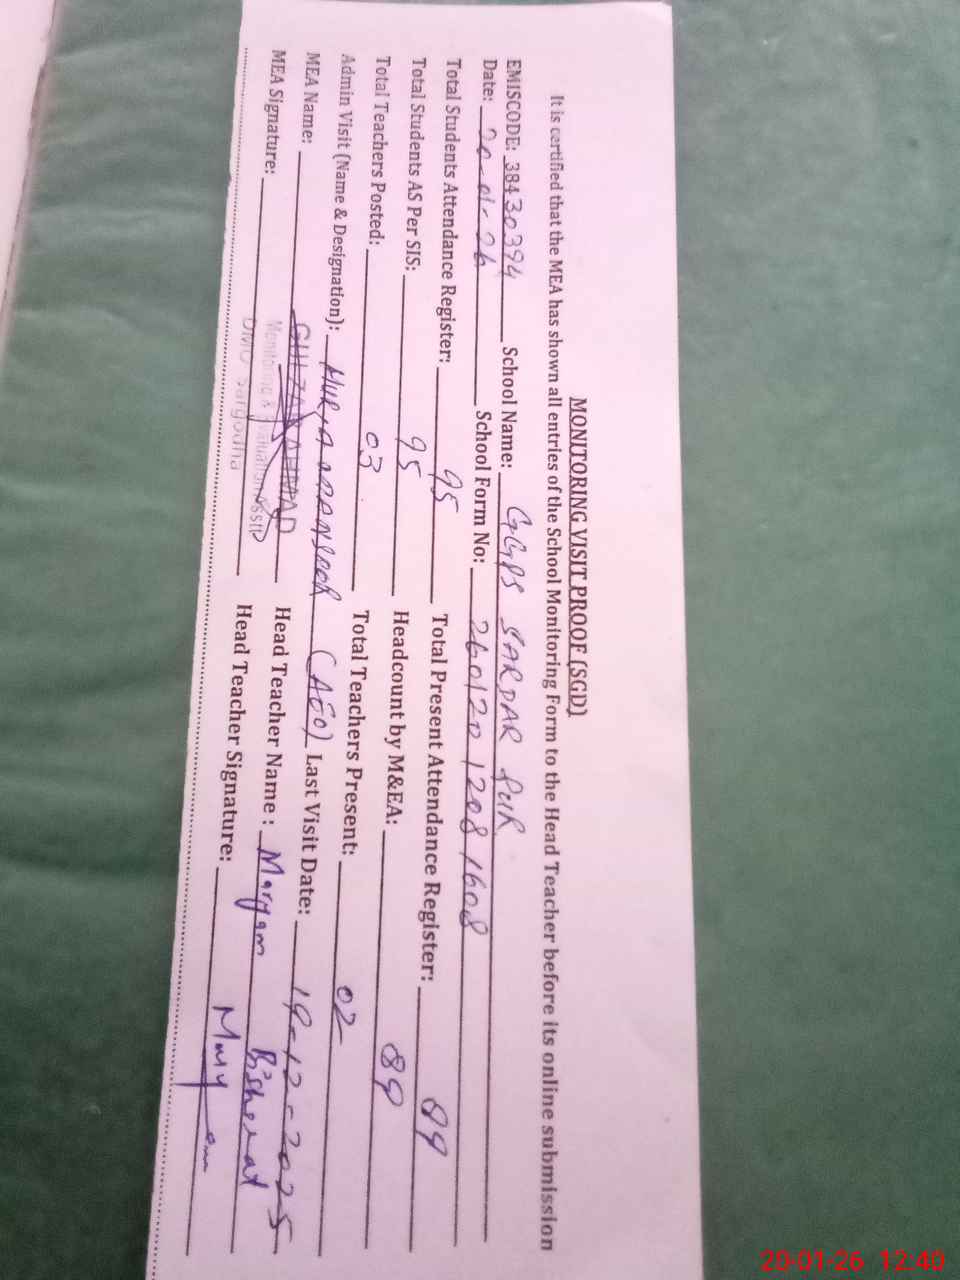 MONITORING VISIT PROOF (SGD)
It is certified that the MEA has shown all entries of the School Monitoring Form to the Head Teacher before its online submission
EMISCODE: 38430394 School Name: GGPS SARDAR PUR
Date: 20-01-26 School Form No: 260120 1208 1608
Total Students Attendance Register: 95 Total Present Attendance Register: 89
Total Students AS Per SIS: 95 Headcount by M&EA: 89
Total Teachers Posted: 03 Total Teachers Present: 02
Admin Visit (Name & Designation): (AEO) Last Visit Date: 19-12-2025
MEA Name: GULZAR AHMAD Head Teacher Name : Maryam
Monitoring & Evaluation Asstt
MEA Signature: DMO Sargodha Head Teacher Signature: Mary am
20-01-26 12:40